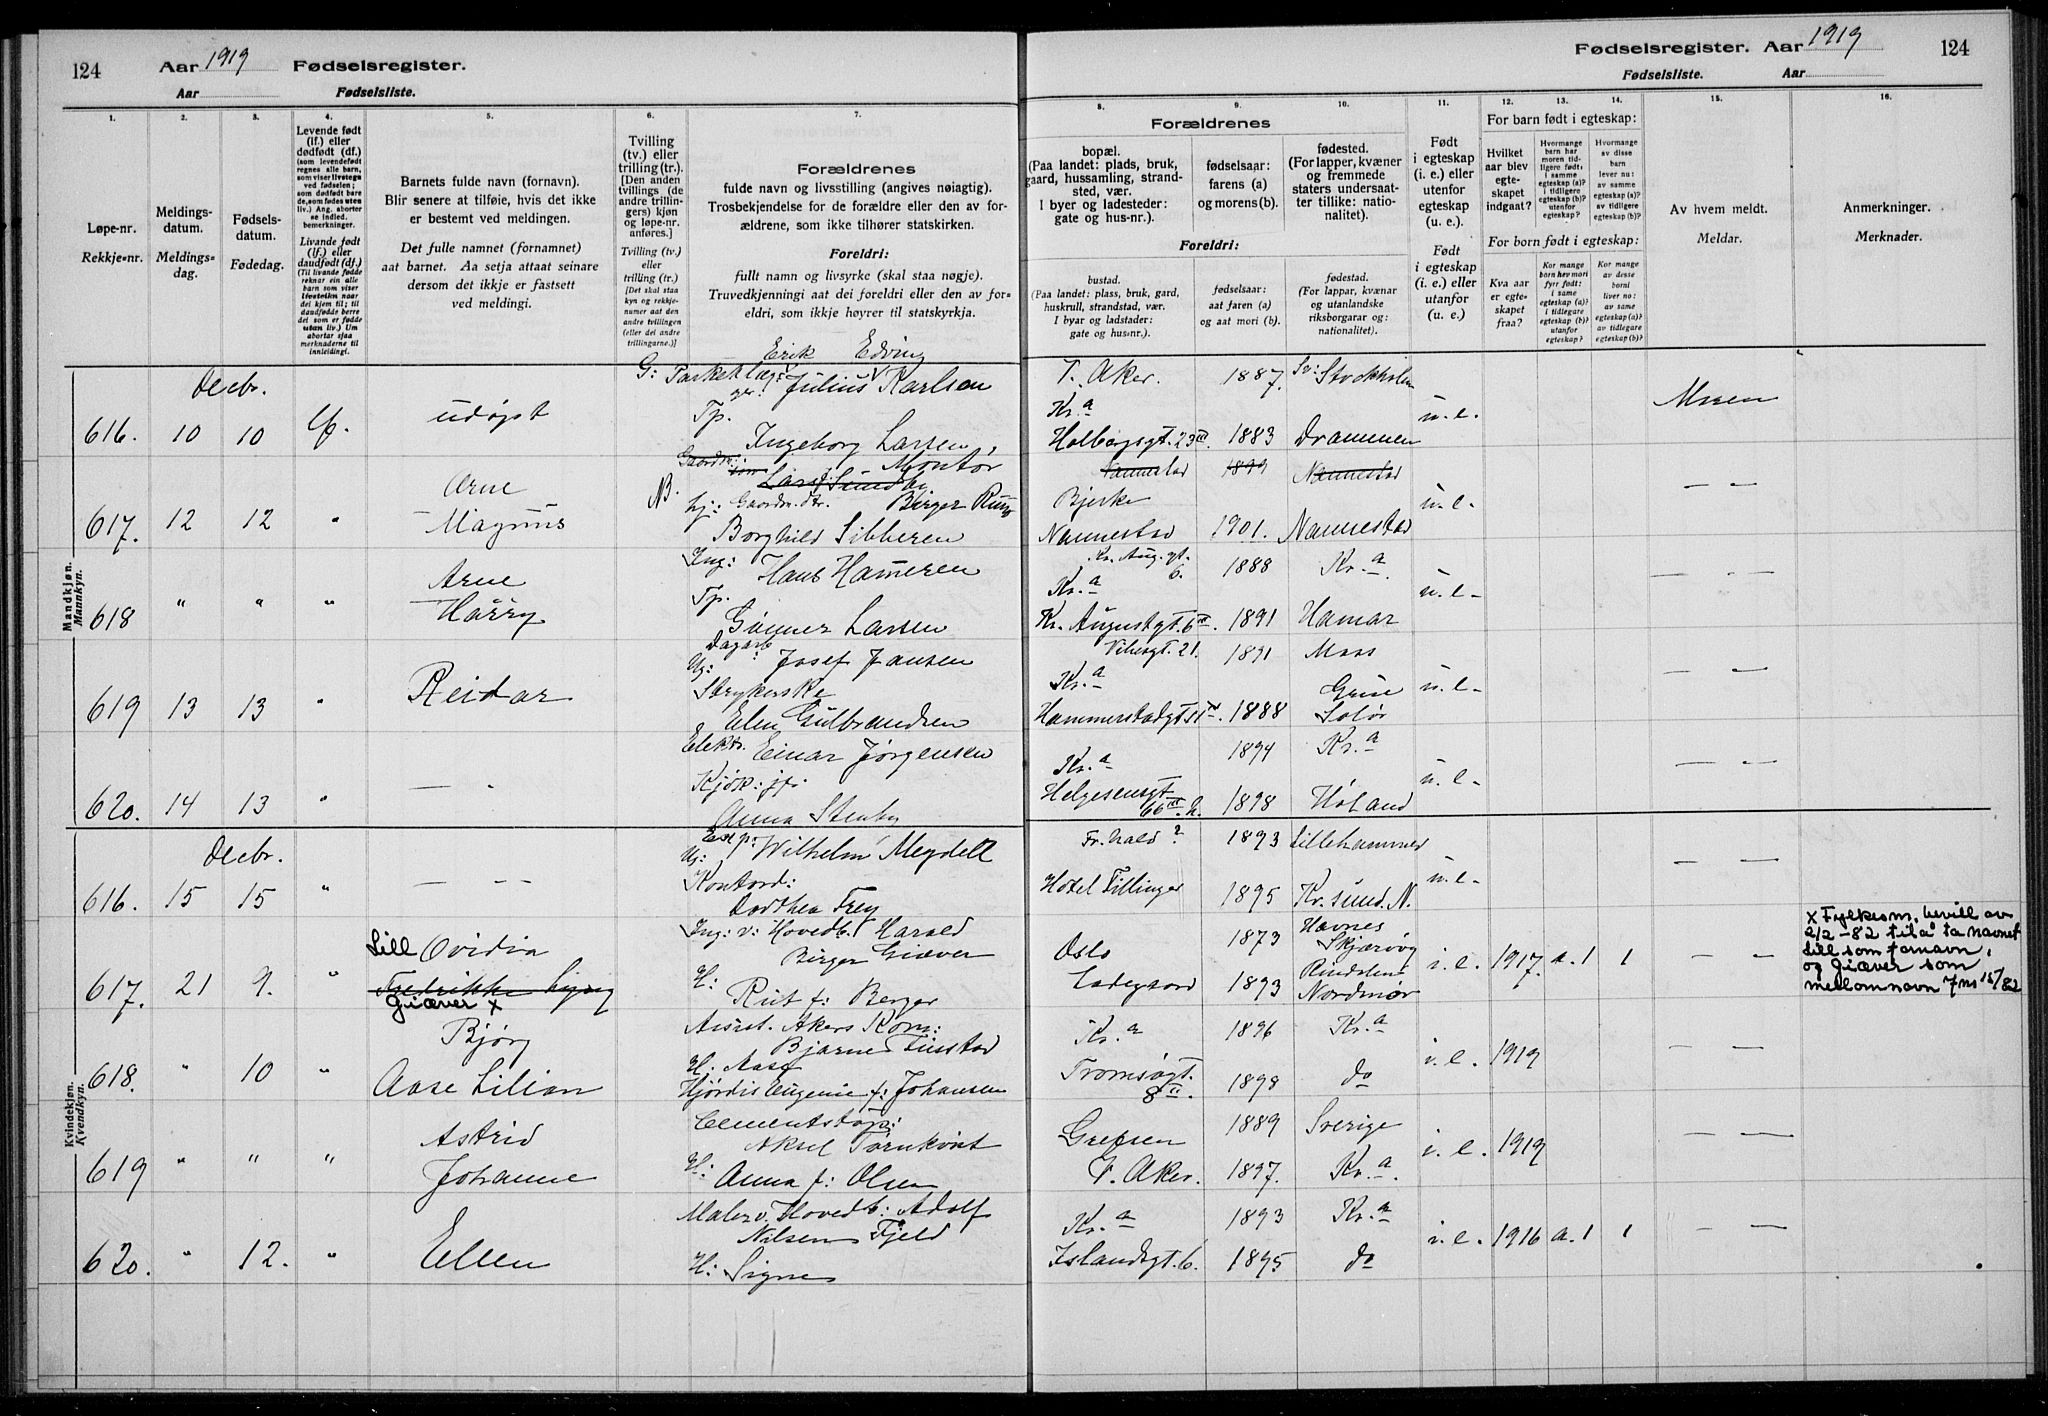 124
Aar 1919 Fødselsregister.
Aar Fødselsliste.
1.
Løpe-nr.
Rekkje-nr.
2.
Meldings-
datum.
Meldings-
dag.
3.
Fødsels-
datum.
Fødedag.
4.
Levende født
(lf.) eller
dødfødt (df.)
(som levendefødt
regnes alle barn,
som viser livstegn
ved fødselen;
som dødfødt bare
de, som fødes uten
liv.) Ang. aborter
se indled.
bemerkninger.
Livande født
(lf.) eller
daudfødt (df.)
(Til livande fødde
reknar ein alle
barn som viser
livsteikn naar
dei kjem til; til
daudfødde berre
dei som er fødde
utan liv.) Um
abortar sjaa
merknaderne til
innleidingi.
5.
Barnets fulde navn (fornavn).
Blir senere at tilføie, hvis det ikke
er bestemt ved meldingen.
Det fulle namnet (fornamnet)
aat barnet. Aa setja attaat seinare
dersom det ikkje er fastsett
ved meldingi.
6.
Tvilling
(tv.) eller
trilling (tr.).
[Den anden
tvillings (de
andre trillin-
gers) kjøn
og løpe-nr.
anføres.]
Tvilling (tv.)
eller
trilling (tr.)
[Det skal staa
kyn og rekkje-
numer aat den
andre tvillingen
(eller dei andre
trillingarne.)]
7.
Forældrenes
fulde navn og livsstilling (angives nøiagtig).
Trosbekjendelse for de forældre eller den av for-
ældrene, som ikke tilhører statskirken.
Foreldri:
fullt namn og livsyrke (skal staa nøgje).
Truvedkjenningi aat dei foreldri eller den av for-
eldri, som ikkje høyrer til statskyrkja.
Mandkjøn.
Mannkyn.
Decbr.
616. 10 10 lf. udøpt
G: Parkeklæg- ger. Erik Julius Edving Karlsen
Tp.
Ingeborg Larsen
617. 12 12 " Arne
Magnus
N.
Lars Sundby
Montør
Birger Rung
hj: Gaardm. dtr.
Borghild Sibberen
618 " " " Arne
Harry
Ing: Hans Hameren
Tp.
Gunner Larsen
619 13 13 " Reidar
Dagarb: Josef Jansen
Ug:
Strykerske
Elen Gulbrandsen
620. 14 13 " — "
Elektr. Einar Jørgensen
Kjøk: jp.
Anna Stenby
Kvindekjøn.
Kvendkyn.
Decbr.
616. 15 15 " — — —
Exp: Wilhelm Meydell
Ug:
Kontord:
Dorthea Frey
617. 21 9. " Lill Ovidia
Fredrikke Lyng
Giæver x
Ing: v: Hovedb. Harald
Birger Giæver
H:
Rut f: Berger
618. " 10 " Bjørg
Aase Lilian
Assist. Akers Kom:
Bjarne Tusstad
H. Aase
Hjørdis Eugenie f: Johansen
619 " " " Astrid
Johanne
Cementstøp:
Aksel Tørnkvist
H: Anna f: Olsen
620. " 12. " Ellen
Maler v. Hovedb: Adolf
Nilsen Fjeld
H: Signe
Fødselsregister. Aar 1919 124
Fødselsliste. Aar
8.
Forældrenes
bopæl.
(Paa landet: plads, bruk,
gaard, hussamling, strand-
sted, vær.
I byer og ladesteder:
gate og hus-nr.).
9.
fødselsaar:
farens (a)
og morens (b).
10.
fødested.
(For lapper, kvæner
og fremmede
staters undersaat-
ter tillike: natio-
nalitet).
Foreldri:
bustad.
(Paa landet: plass, bruk, gard,
huskrull, strandstad, vær.
I byar og ladstader:
gate og hus-nr.).
fødselsaar:
aat faren (a)
og aat mori (b).
fødestad.
(For lappar, kvænar
og utanlandske
riksborgarar og:
nationalitet).
11.
Født
i egteskap
(i. e.) eller
utenfor
egteskap
(u. e.).
Født
i egteskap
(i. e.) eller
utanfor
(u. e.)
12. 13. 14.
For barn født i egteskap:
Hvilket
aar blev
egte-
skapet
indgaat?
Hvormange
barn har
moren tid-
ligere født:
i samme
egteskap (a)?
i tidligere
egteskap (b)?
utenfor
egteskap?
Hvormange
av disse
barn
lever nu:
av samme
egteskap (a)?
av tidligere
egteskap (b)?
For born født i egteskap:
Kva aar
er egte-
skapet
fraa?
Kor mange
born hev mori
fyrr født:
i same
egteskap (a)?
i tidlegare
egteskap (b)?
utanfor
egteskap?
Kor mange
av desse
borni
liver no:
av same
egteskap (a)?
av tidlegare
egteskap (b)?
15.
Av hvem meldt.
Meldar.
16.
Anmerkninger.
Merknader.
V. Aker. 1887. Sv: Stockholm
Kr.a u.e. Moren
Holbergsgt. 23III. 1883 Drammen
Nannestad 1899 Nannestad
Bjerke u.e. — —
Nannestad 1901. Nannestad
Kr. Aug. gt. 6. 1888 Kr.a
Kr.a u.e. — —
Kr. Augustgt. 6III. 1891 Hamar
Vibesgt. 21. 1891 Moss
Kr.a u.e. — —
Hammerstadgt 1888 Grue
Solør
1894 Kr.a
Kr.a u.e. — —
Helgesensgt
66III. h. 1898 Høland
Fr.hald? 1893 Lillehammer
u.e. — —
Hotel Fillinger 1895 Kr.sund. N.
Oslo 1873 Havnes
Skjærvøy
i.e. 1917. a. 1 1 — —
Ladegaard 1893 Rindalen
Nordmør
x Fylkesm. bevill av
2/2-82 til å ta navnet
Lill som fornavn,
og Giæver som
mellomnavn 7ns 15/82
Kr.a 1896 Kr.a
i.e. 1919 — —
Tromsøgt.
8II. 1898 do
Grefsen 1889 Sverige
i.e. 1919 — —
V. Aker. 1897. Kr.a.
Kr.a 1893 Kr.a
i.e. 1916 a. 1 1 — —
Islandsgt. 6. 1895 do